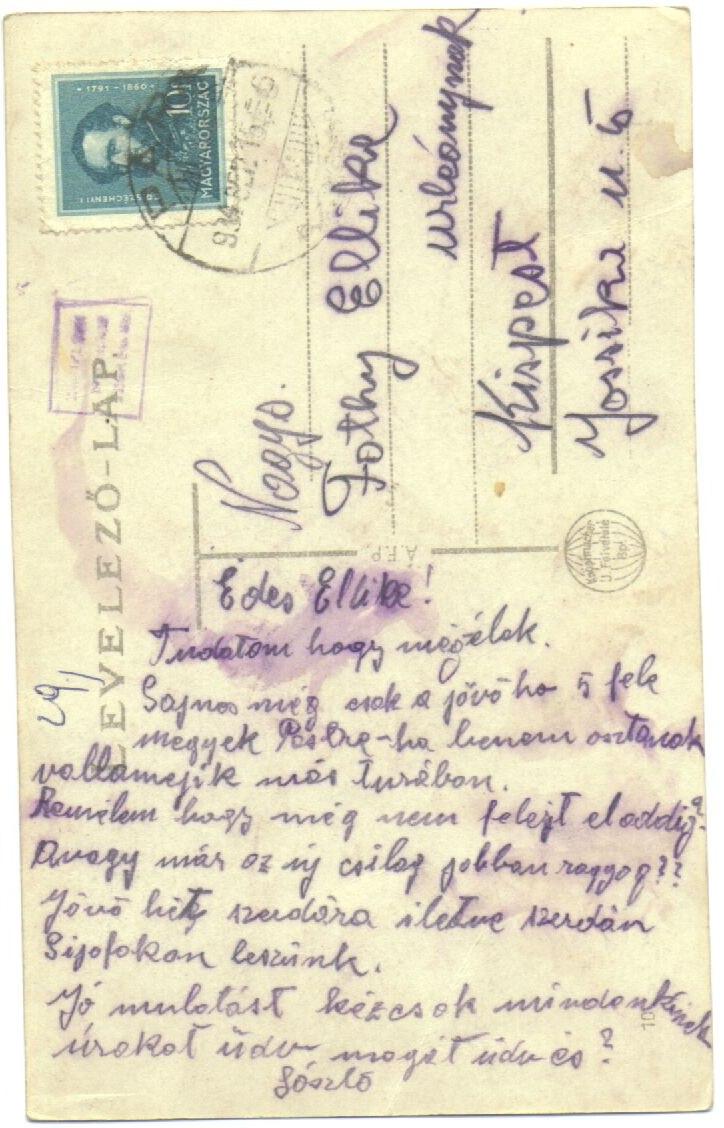 1791-1860
10f
MAGYARORSZÁG
SZÉCHENYI I
LEVELEZŐ-LAP.
Nagys.
Fothy Ellike
urleánynak
Kispest
Jossika u 5
A.F.P.
29/
Édes Ellike!
Tudatom hogy mégélek.
Sajnos még csak a jövő ho 5 fele
megyek Pestre-ha benem osztanak
vallamejik más turában.
Remélem hogy még nem felejt eladdig?
Avagy már az uj csilag jobban ragyog??
Jövö hét szerdára iletve szerdán
Sijofokon leszünk.
Jó mulatást kézcsok mindenkinek
úrakat üdv magát üdv és?
László